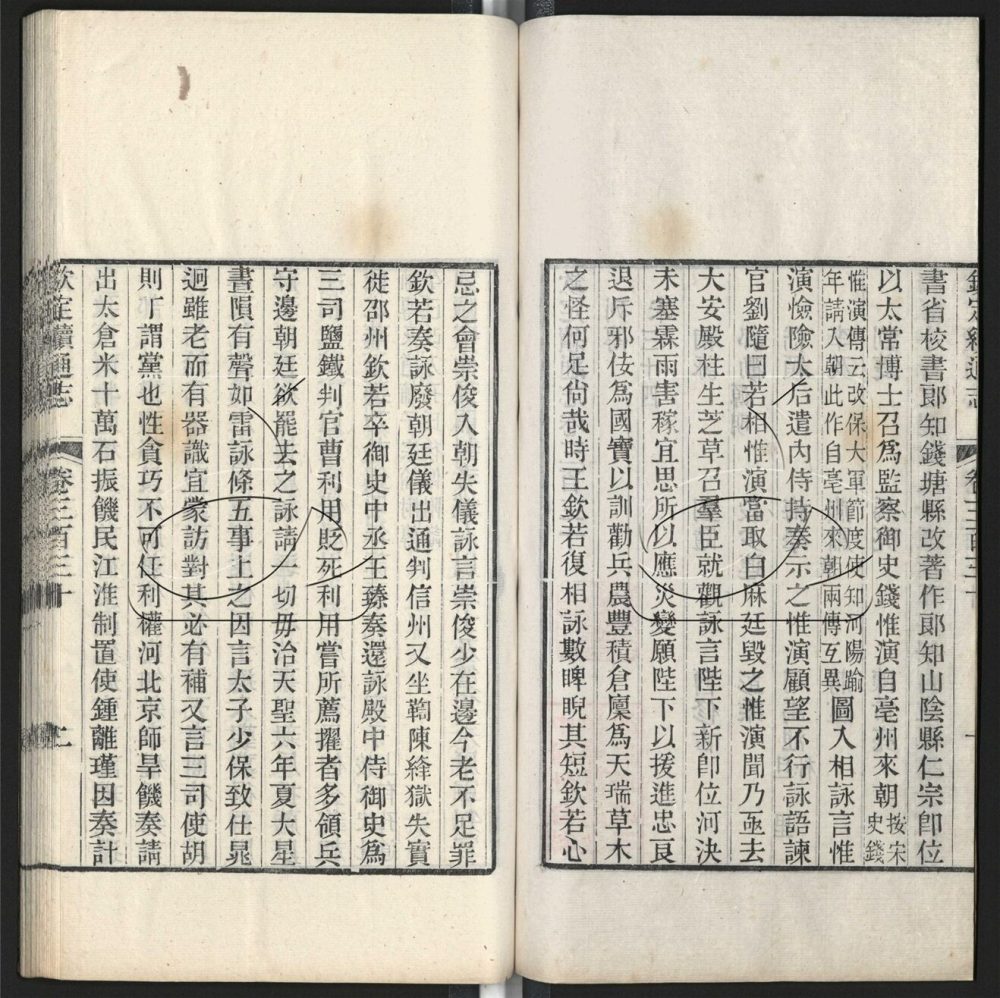 欽定續通志
卷三百三十
書省校書郎知錢塘縣改著作郎知山陰縣仁宗卽位
以太常博士召爲監察御史錢惟演自亳州來朝按宋史錢
惟演傳云改保大軍節度使知河陽踰年請入朝此作自亳州來朝兩傳互異圖入相詠言惟
演憸險太后遣內侍持奏示之惟演顧望不行詠語諫
官劉隨曰若相惟演當取白麻廷毀之惟演聞乃亟去
大安殿柱生芝草召羣臣就觀詠言陛下新卽位河決
未塞霖雨害稼宜思所以應災變願陛下以援進忠良
退斥邪佞爲國寶以訓勸兵農豐積倉廩爲天瑞草木
之怪何足尙哉時王欽若復相詠數睥睨其短欽若心
忌之會崇俊入朝失儀詠言崇俊少在邊今老不足罪
欽若奏詠廢朝廷儀出通判信州又坐鞫陳絳獄失實
徙邵州欽若卒御史中丞王臻奏還詠殿中侍御史爲
三司鹽鐵判官曹利用貶死利用嘗所薦擢者多領兵
守邊朝廷欲罷去之詠請一切毋治天聖六年夏大星
晝隕有聲如雷詠條五事上之因言太子少保致仕晁
迥雖老而有器識宜蒙訪對其必有補又言三司使胡
則丁謂黨也性貪巧不可任利權河北京師旱饑奏請
出太倉米十萬石振饑民江淮制置使鍾離瑾因奏計
欽定續通志
卷三百三十
二